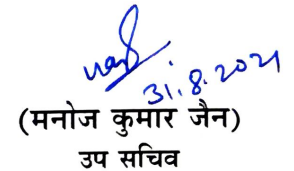 31.8.2021
(मनोज कुमार जैन)
उप सचिव